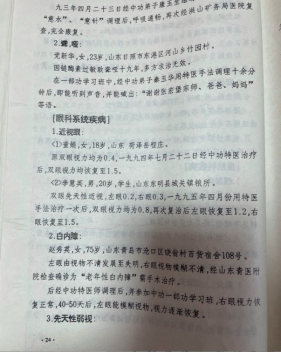 九三年四月二十三日经中功弟子康玉
"意水"、"意针"调理后,呼吸通畅,再次经洪山矿务局医院复
查,完全康复。
2.聋、哑:
尤新华,女,23岁,山东日照市东港区河山乡竹园村。
因链酶素过敏致聋哑十九年,多方求治无效。
在一部功学习班中,经中功弟子康玉华用特医手法调理十余分
钟后,即能听到声音,并能喊出:"谢谢张宏堡宗师、爸爸、妈妈"
等语。
[眼科系统疾病]
1.近视眼:
〈1〉董 ,女,18岁,山东 荷泽县程庄。
原双眼视力均为0.4,一九九四年七月二十三日经中功特医治疗
后,双眼视力均恢复至1.5。
〈2〉李 英,男,20岁,学生,山东东明县城关镇粮所。
双眼先天性近视,左眼0.2,右眼0.3,一九九五年四月份用特医
手法治疗一次后,双眼视力均为0.8,再次复治后左眼恢复至1.2,右
眼恢复1.5。
2.白内障:
赵秀英,女,75岁,山东青岛市沧口区 百货宿舍108号。
左眼由视物不清发展至失明,右眼视物模糊不清,经山东青医附
院检查确诊为"老年性白内障"需手术治疗。
后经中功特医师调理后,并参加中功一部功学习班,右眼视力恢
复正常,40-50天后,左眼能模糊视物,视力逐渐恢复。
3.先天性弱视:
·24·